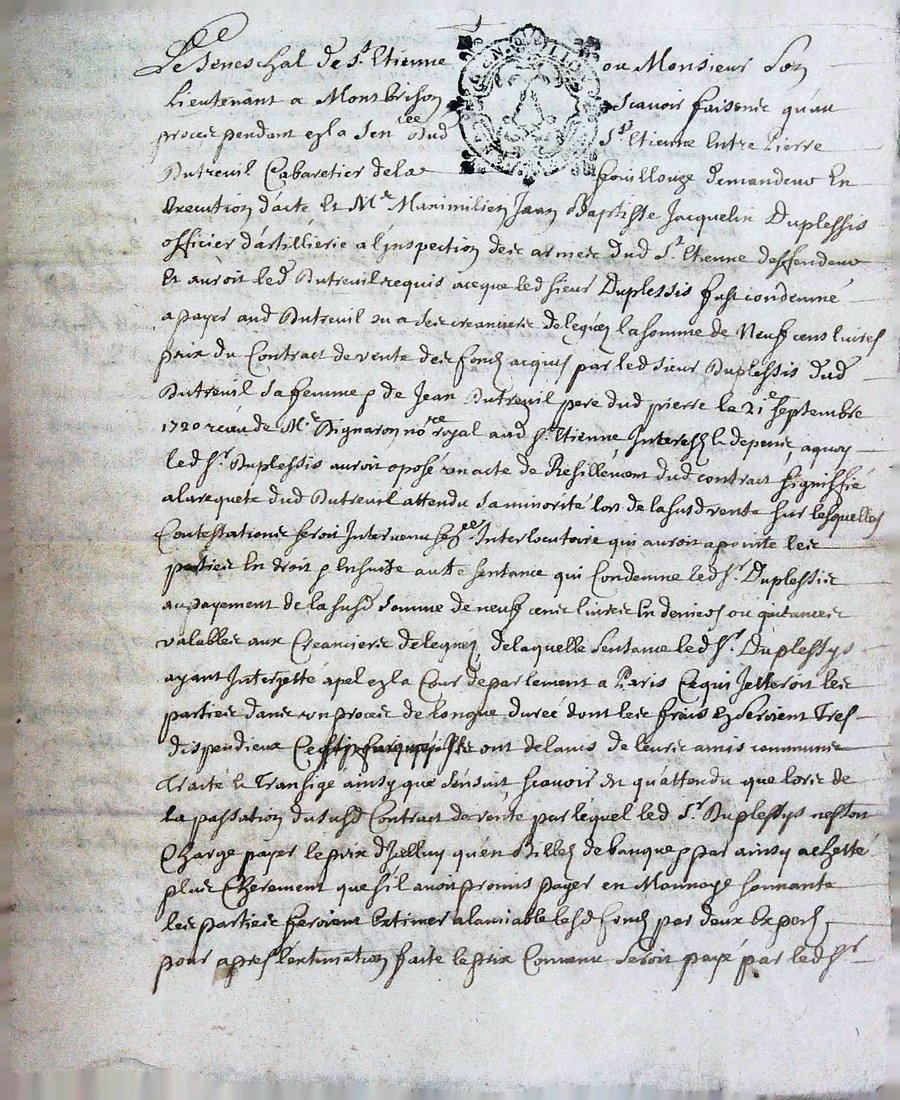 Le Seneschal de St. Etienne ou Monsieur Son
Lieutenant a Montbrison Scavoir faisons qu'au
proces pendant en la Sen.ée dud St. Etienne Entre Pierre
Dutreuil Cabaretier de la foüillouze demandeur En
Execution d'acte Et Me. Maximilien Jean Baptiste Jacquelin Duplessis
officier d'artillierie a l'inspection des armes dud St. Etienne deffendeur
Et auroit led Dutreuil requis aceque led sieur Duplessis fust condemné
a payer aud Dutreuil ou a ses creanciers deleguez la somme de Neuf cens livres
prix du Contract de vente des fonds acquis par led sieur Duplessis dud
Dutreuil sa femme & de Jean Dutreuil pere dud pierre le 21e Septembre
1720 receu de Me. nore royal aud St. Etienne Interests & depens, aquoy
led Sr. Duplessis auroit oposé un acte de Resiliement dud contract signiffié
a la requete dud Dutreuil attendu sa minorité lors de la susd vente sur lesquelles
Contestations seroit Intervenu Interlocutoire qui auroit apointé les
parties En droit & Ensuite autre sentance qui Condemne led Sr. Duplessis
au payement de la susd somme de neuf cens livres En deniers ou quitances
valables aux Creanciers deleguez, de laquelle sentance led Sr. Duplessys
ayant Interjetté apel en la Cour de parlement a Paris Ce qui Jetteroit les
parties dans un proces de longue duree dont les frais En seroient Tres
dispendieux ont de l'avis de leurs amis communs
Traité & Transigé ainsy que s'ensuit, scavoir qu'attendu que lors de
la passation du susd Contract de vente par lequel led Sr. Duplessys
Chargé payer le prix d'Jcelluy qu'en Billets de banque & par ainsy achetté
plus Cherement que s'il avoit promis payer en Monnoye sonnante
les parties feroient Extimer a l'amiable lesd fonds par deux Experts
pour apres l'extimation faite le prix Convenu seroit payé par led Sr